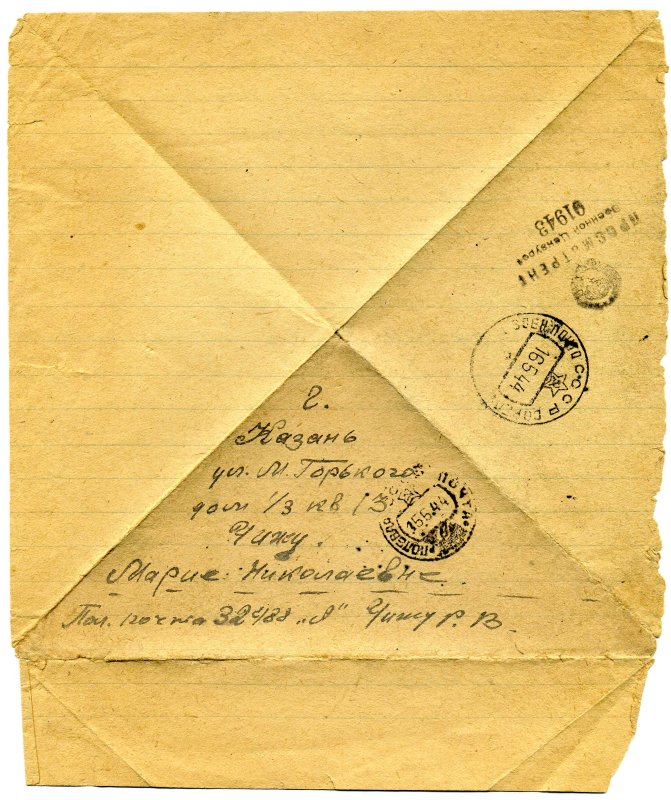 г.
Казань
ул. М. Горького
дом 1/3 кв 13
Чижу.
Марие Николаевне
Пол. почта 32488 „А" Чижу Р. В.
ПРОСМОТРЕНО
Военной Цензурой
01943
СССР
16 5 44
ПОЛЕВАЯ ПОЧТА
15 5 44